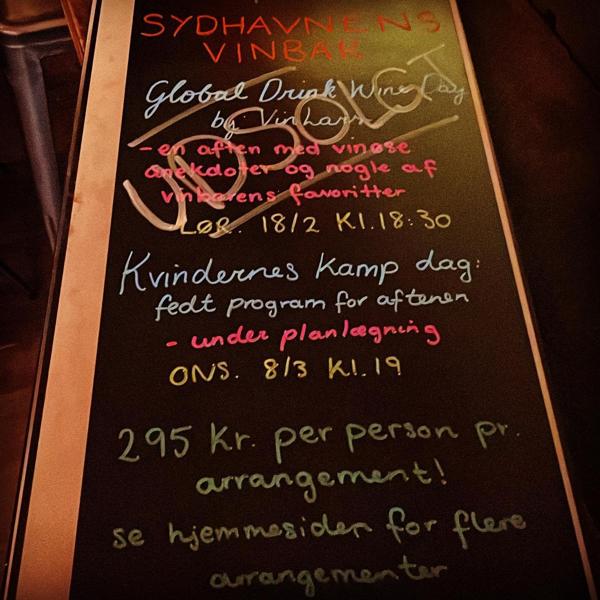 SYDHAVNENS
VINBAR
Global Drink Wine Day
by VinLars
UDSOLGT
- en aften med vinøse
anekdoter og nogle af
vinbarens favoritter
LØR. 18/2 Kl.18:30
Kvindernes Kamp dag:
fedt program for aftenen
- under planlægning
ONS. 8/3 Kl.19
295 Kr. per person pr.
arrangement!
se hjemmesiden for flere
arrangementer